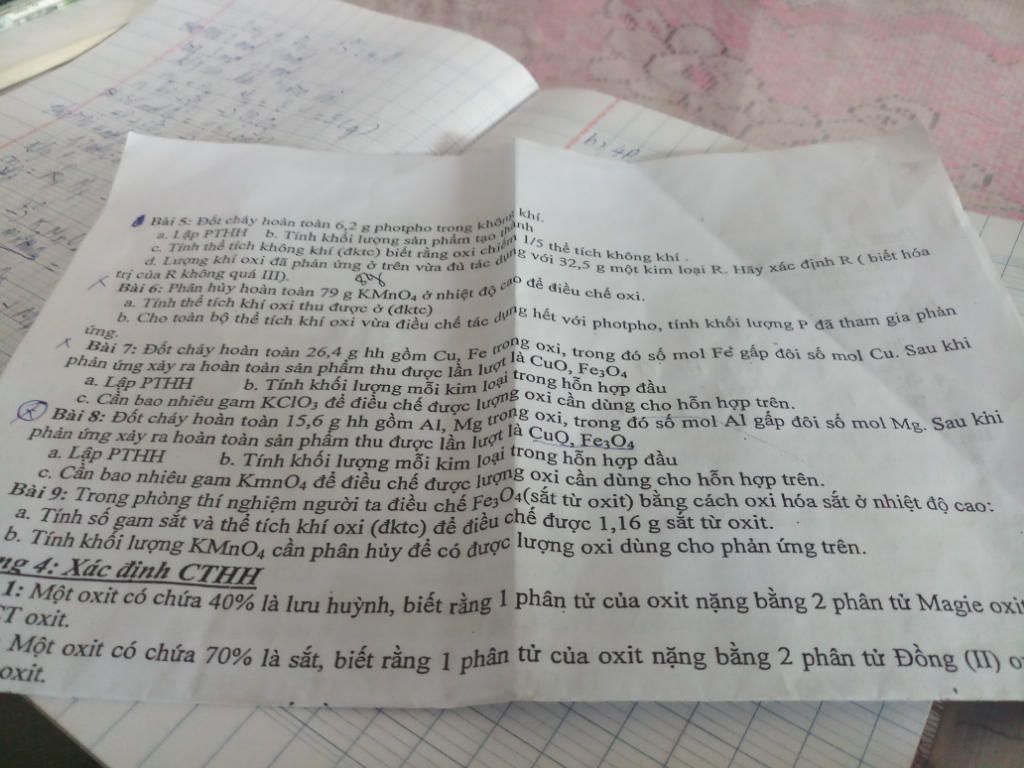 Bài 5: Đốt cháy hoàn toàn 6,2 g photpho trong không khí.
a. Lập PTHH b. Tính khối lượng sản phẩm tạo thành
c. Tính thể tích không khí (đktc) biết rằng oxi chiếm 1/5 thể tích không khí .
d. Lượng khí oxi đã phản ứng ở trên vừa đủ tác dụng với 32,5 g một kim loại R. Hãy xác định R ( biết hóa
trị của R không quá III).
Bài 6: Phân hủy hoàn toàn 79 g KMnO4 ở nhiệt độ cao để điều chế oxi.
a. Tính thể tích khí oxi thu được ở (đktc)
b. Cho toàn bộ thể tích khí oxi vừa điều chế tác dụng hết với photpho, tính khối lượng P đã tham gia phản
ứng.
Bài 7: Đốt cháy hoàn toàn 26,4 g hh gồm Cu, Fe trong oxi, trong đó số mol Fe gấp đôi số mol Cu. Sau khi
phản ứng xảy ra hoàn toàn sản phẩm thu được lần lượt là CuO, Fe3O4
a. Lập PTHH b. Tính khối lượng mỗi kim loại trong hỗn hợp đầu
c. Cần bao nhiêu gam KClO3 để điều chế được lượng oxi cần dùng cho hỗn hợp trên.
Bài 8: Đốt cháy hoàn toàn 15,6 g hh gồm Al, Mg trong oxi, trong đó số mol Al gấp đôi số mol Mg. Sau khi
phản ứng xảy ra hoàn toàn sản phẩm thu được lần lượt là CuO, Fe3O4
a. Lập PTHH b. Tính khối lượng mỗi kim loại trong hỗn hợp đầu
c. Cần bao nhiêu gam KmnO4 để điều chế được lượng oxi cần dùng cho hỗn hợp trên.
Bài 9: Trong phòng thí nghiệm người ta điều chế Fe3O4(sắt từ oxit) bằng cách oxi hóa sắt ở nhiệt độ cao:
a. Tính số gam sắt và thể tích khí oxi (đktc) để điều chế được 1,16 g sắt từ oxit.
b. Tính khối lượng KMnO4 cần phân hủy để có được lượng oxi dùng cho phản ứng trên.
ng 4: Xác định CTHH
1: Một oxit có chứa 40% là lưu huỳnh, biết rằng 1 phân tử của oxit nặng bằng 2 phân tử Magie oxit
T oxit.
: Một oxit có chứa 70% là sắt, biết rằng 1 phân tử của oxit nặng bằng 2 phân tử Đồng (II) o
oxit.